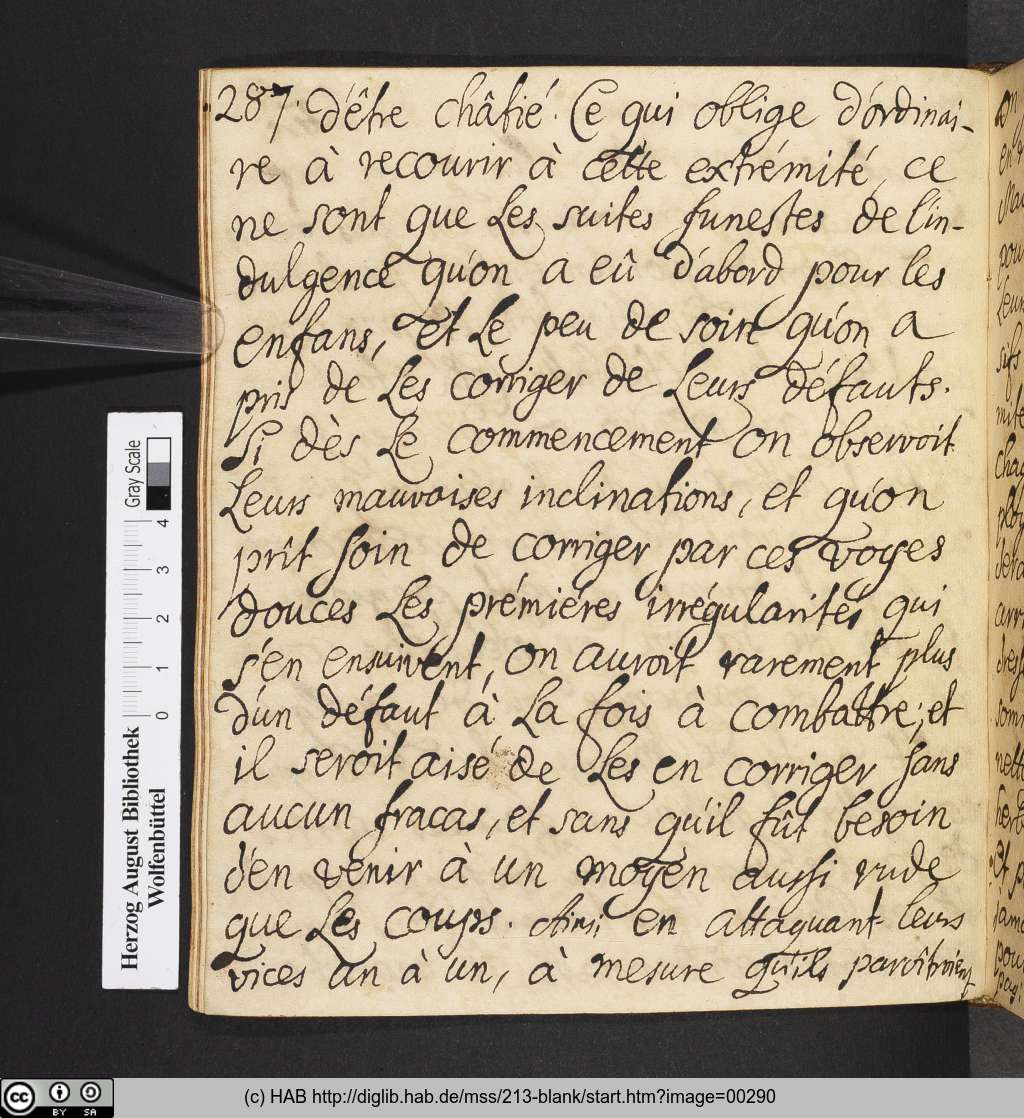 287. d'être châtié. Ce qui oblige d'ordinai-
re à recourir à cette extrémité, ce
ne sont que Les suites funestes de l'in-
dulgence qu'on a eû d'abord pour les
enfans, et Le peu de soin qu'on a
pris de Les corriger de Leurs défauts.
Si dès Le commencement on observoit
Leurs mauvaises inclinations, et qu'on
prît soin de corriger par ces voyes
douces Les prémiéres irrégularités qui
s'en ensuivent, on auroit rarement plus
d'un défaut à La fois à combattre; et
il seroit aisé de Les en corriger sans
aucun fracas, et sans qu'il fût besoin
d'en venir à un moyen aussi rude
que Les coups. Ainsi en attaquant leurs
vices un à un, à mesure qu'ils parôitroient
Herzog August Bibliothek
Wolfenbüttel
0 1 2 3 4
Gray Scale
cc BY SA
(c) HAB http://diglib.hab.de/mss/213-blank/start.htm?image=00290